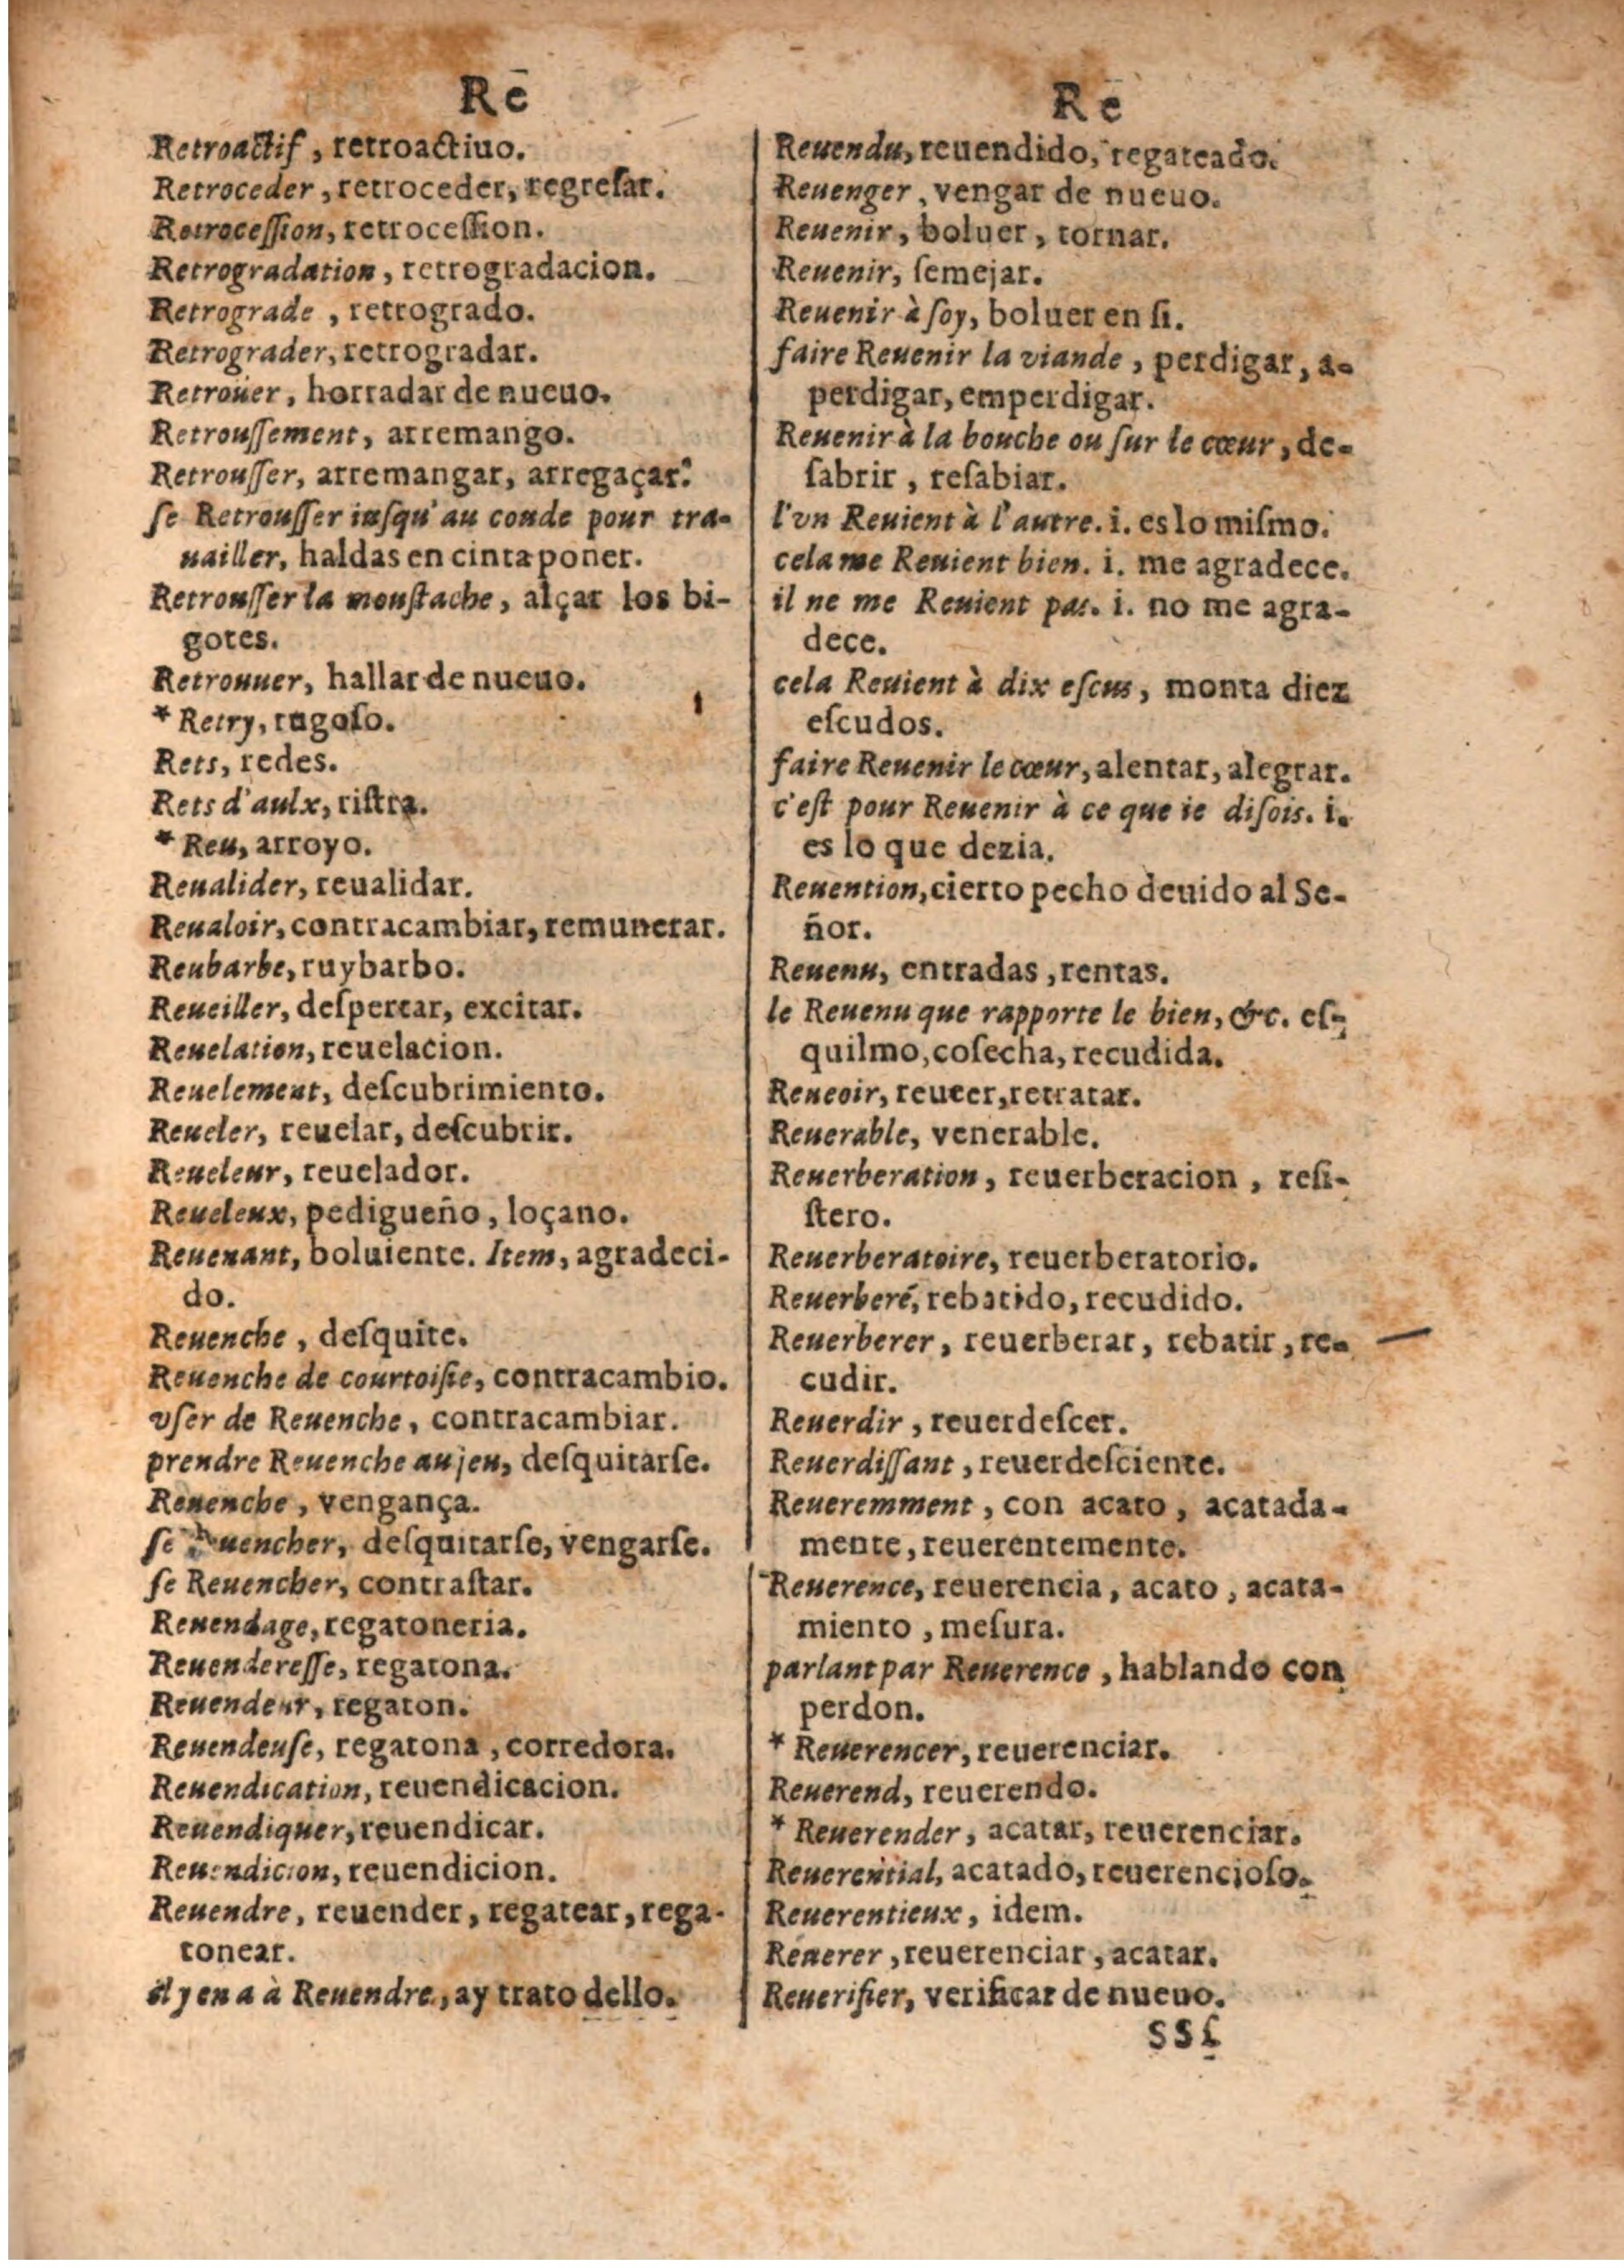 Re
Retroactif, retroactiuo.
Retroceder, retroceder, regreſar.
Retroceſſion, retroceſſion.
Retrogradation, retrogradacion.
Retrograde, retrogrado.
Retrograder, retrogradar.
Retroüer, horradar de nueuo.
Retrouſſement, arremango.
Retrouſſer, arremangar, arregaçar.
ſe Retrouſſer iuſqu'au coude pour tra-
uailler, haldas en cinta poner.
Retrouſſer la mouſtache, alçar los bi-
gotes.
Retrouuer, hallar de nueuo.
* Retry, rugoſo.
Rets, redes.
Rets d'aulx, riſtra.
* Reu, arroyo.
Reualider, reualidar.
Reualoir, contracambiar, remunerar.
Reubarbe, ruybarbo.
Reueiller, deſpertar, excitar.
Reuelation, reuelacion.
Reuelement, deſcubrimiento.
Reueler, reuelar, deſcubrir.
Reueleur, reuelador.
Reueleux, pedigueño, loçano.
Reuenant, boluiente. Item, agradeci-
do.
Reuenche, deſquite.
Reuenche de courtoiſie, contracambio.
vſer de Reuenche, contracambiar.
prendre Reuenche au jeu, deſquitarſe.
Reuenche, vengança.
ſe Reuencher, deſquitarſe, vengarſe.
ſe Reuencher, contraſtar.
Reuendage, regatoneria.
Reuendereſſe, regatona.
Reuendeur, regaton.
Reuendeuſe, regatona, corredora.
Reuendication, reuendicacion.
Reuendiquer, reuendicar.
Reuendicion, reuendicion.
Reuendre, reuender, regatear, rega-
tonear.
il y en a à Reuendre, ay trato dello.
Re
Reuendu, reuendido, regateado.
Reuenger, vengar de nueuo.
Reuenir, boluer, tornar.
Reuenir, ſemejar.
Reuenir à ſoy, boluer en ſi.
faire Reuenir la viande, perdigar, a-
perdigar, emperdigar.
Reuenir à la bouche ou ſur le cœur, de-
ſabrir, reſabiar.
l'vn Reuient à l'autre. i. es lo miſmo.
cela me Reuient bien. i. me agradece.
il ne me Reuient pas. i. no me agra-
dece.
cela Reuient à dix eſcus, monta diez
eſcudos.
faire Reuenir le cœur, alentar, alegrar.
c'eſt pour Reuenir à ce que ie diſois. i.
es lo que dezia.
Reuention, cierto pecho deuido al Se-
ñor.
Reuenu, entradas, rentas.
le Reuenu que rapporte le bien, &c. eſ-
quilmo, coſecha, recudida.
Reueoir, reueer, retratar.
Reuerable, venerable.
Reuerberation, reuerberacion, reſi-
ſtero.
Reuerberatoire, reuerberatorio.
Reuerberé, rebatido, recudido.
Reuerberer, reuerberar, rebatir, re-
cudir.
Reuerdir, reuerdeſcer.
Reuerdiſſant, reuerdeſciente.
Reueremment, con acato, acatada-
mente, reuerentemente.
Reuerence, reuerencia, acato, acata-
miento, meſura.
parlant par Reuerence, hablando con
perdon.
* Reuerencer, reuerenciar.
Reuerend, reuerendo.
* Reuerender, acatar, reuerenciar.
Reuerential, acatado, reuerencioſo.
Reuerentieux, idem.
Reuerer, reuerenciar, acatar.
Reuerifier, verificar de nueuo.
SSſ